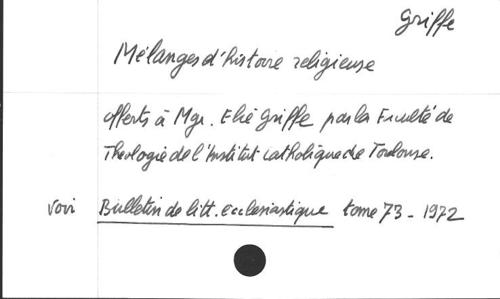 Griffe
Mélanges d'histoire religieuse
offerts à Mgr. Elie Griffe par la Faculté de
Théologie de l'Institut catholique de Toulouse.
voir Bulletin de litt. ecclesiastique tome 73 - 1972